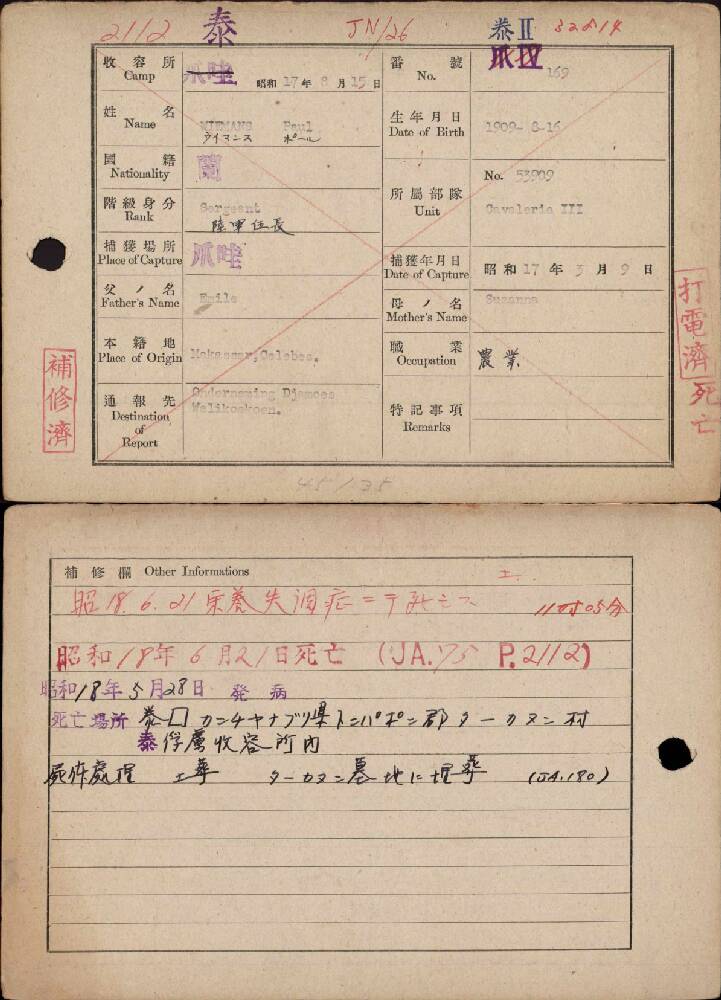 2112 泰 JN/26 泰II
爪哇 爪IV
收容所 Camp 爪哇 昭和17年8月15日
番號 No. 169
姓名 Name WIEMANS Paul
ウイマンス ポール
生年月日 Date of Birth 1909-8-16
國籍 Nationality 蘭
階級身分 Rank Sergeant
所屬部隊 Unit No. 53909
Cavalerie III
捕獲場所 Place of Capture 爪哇
捕獲年月日 Date of Capture 昭和17年3月9日
父ノ名 Father's Name Emile
母ノ名 Mother's Name Suzanna
本籍地 Place of Origin Makassar, Celebes.
職業 Occupation 農業
通報先 Destination of Report Onderneming Djamoes
Walikoekoen.
特記事項 Remarks
補修濟
打電濟
死亡
45/35
補修欄 Other Informations
昭18.6.21 栄養失調症ニテ死亡ス 11時05分
昭和18年6月21日死亡 (JA.75 P.2112)
昭和18年5月28日 発病
死亡場所 泰国カンチヤナブリ県 郡ターカヌン村
泰俘虜收容所内
屍体處理 土葬 ターカヌン墓地に埋葬 (JA.180)